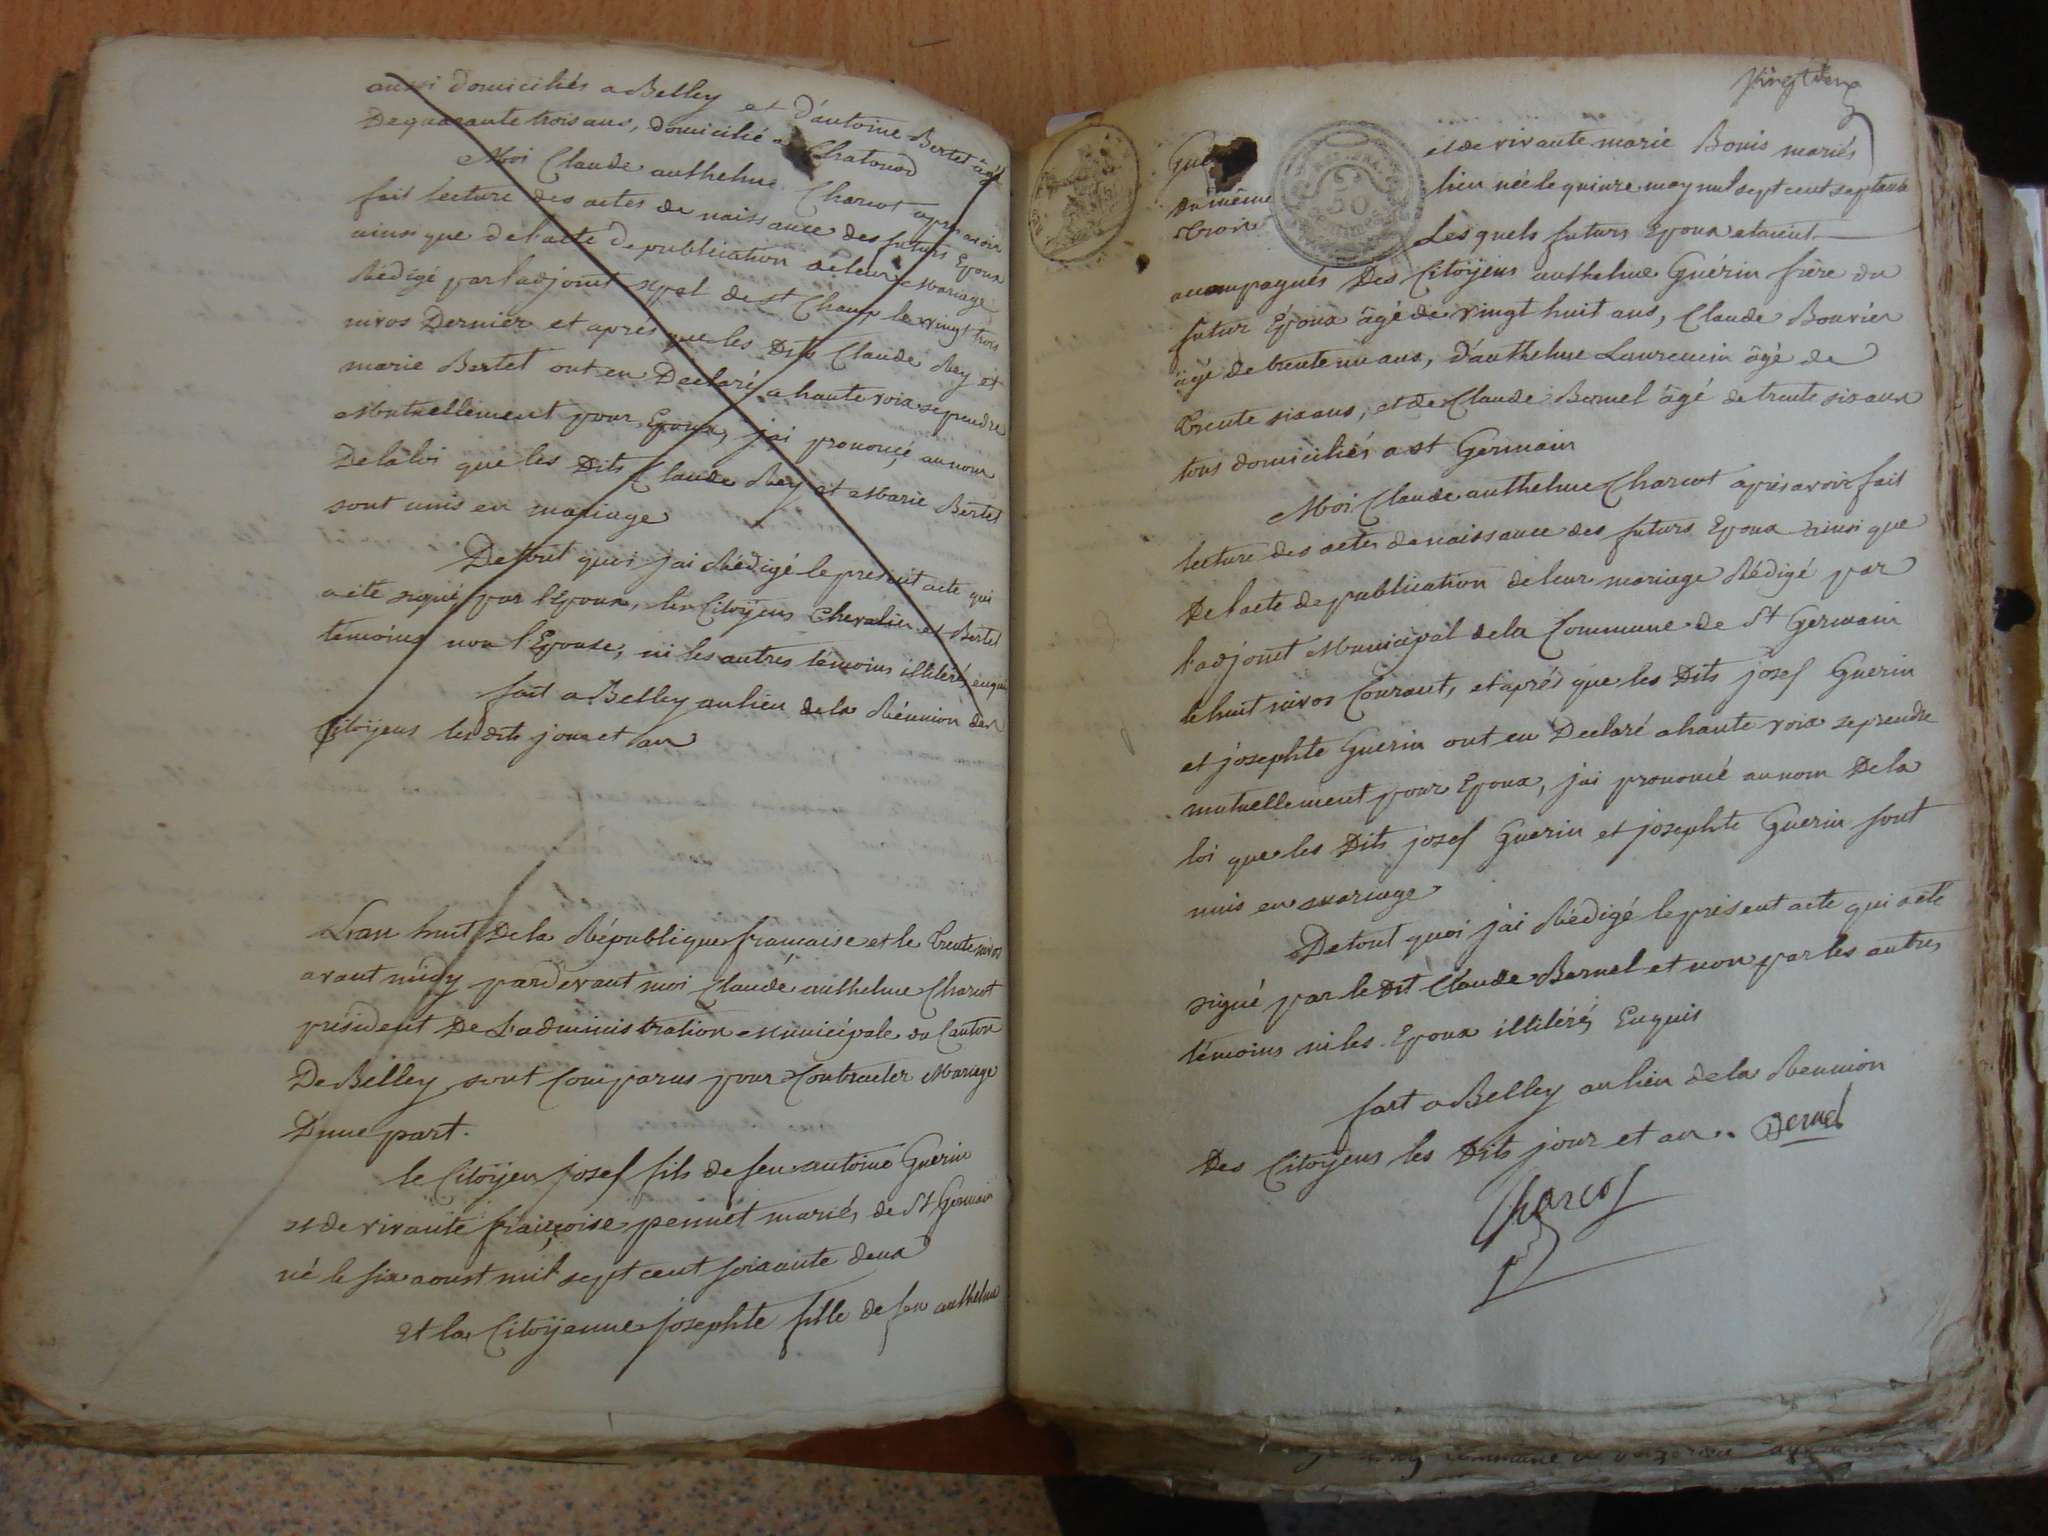 aussi domiciliés a Belley et d'antoine Bertet âgé
De quarante trois ans, domicilié a Chatonod
Moi Claude anthelme Charcot apres avoir
fait lecture des actes de naissance des futurs Epoux
ainsi que de l'acte de publication de leur Mariage
Rédigé par l'adjoint mpal de st Champ le vingt trois
nivos Dernier et après que les Dits Claude Rey et
marie Bertet ont eu Declaré a haute voix se prendre
Mutuellement pour Epoux, j'ai prononcé au nom
De la loi que les Dits Claude Rey et Marie Bertet
sont unis en mariage
De tout quoi j'ai Rédigé le present acte qui
a eté signé par l'Epoux, les Citoÿens Chevalier et Bertet
témoins non l'Epouse, ni les autres témoins illitérés enquis
fait a Belley au lieu de la Réunion des
Citoÿens les dits jour et an
L'an huit De la République française et le trente nivos
avant midy pardevant moi Claude anthelme Charcot
président De L'administration Municipale du Canton
De Belley sont Comparus pour Contracter Mariage
D'une part.
le Citoÿen josef fils de feu antoine Guerin
et de vivante françoise pennet mariés de St Germain
né le six aoust mil sept cent soixante deux
Et la Citoÿenne josephte fille de feu anthelme
vingt deux
et de vivante marie Bonis mariés
du même lieu née le quinze may mil sept cent septante
trois Lesquels futurs Epoux etaient
accompagnés Des Citoÿens anthelme Guérin frère du
futur Epoux âgé de vingt huit ans, Claude Bouvier
âgé de trente un ans, d'anthelme Laurencin âgé de
trente six ans, et de Claude Bernel âgé de trente six ans
tous domiciliés a st Germain
Moi Claude anthelme Charcot après avoir fait
lecture des actes de naissance des futurs Epoux ainsi que
De l'acte de publication de leur mariage Rédigé par
l'adjoint Municipal de la Commune de St Germain
le huit nivos Courant, et après que les Dits josef Guerin
et josephte Guerin ont eu Declaré a haute voix se prendre
mutuellement pour Epoux, j'ai prononcé au nom De la
loi que les Dits josef Guerin et josephte Guerin sont
unis en mariage
De tout quoi j'ai Rédigé le present acte qui a eté
signé par le Dit Claude Bernel et non par les autres
témoins ni les Epoux illitérés Enquis
fait a Belley au lieu de la Réunion
Des Citoÿens les Dits jour et an. Bernel
Charcot